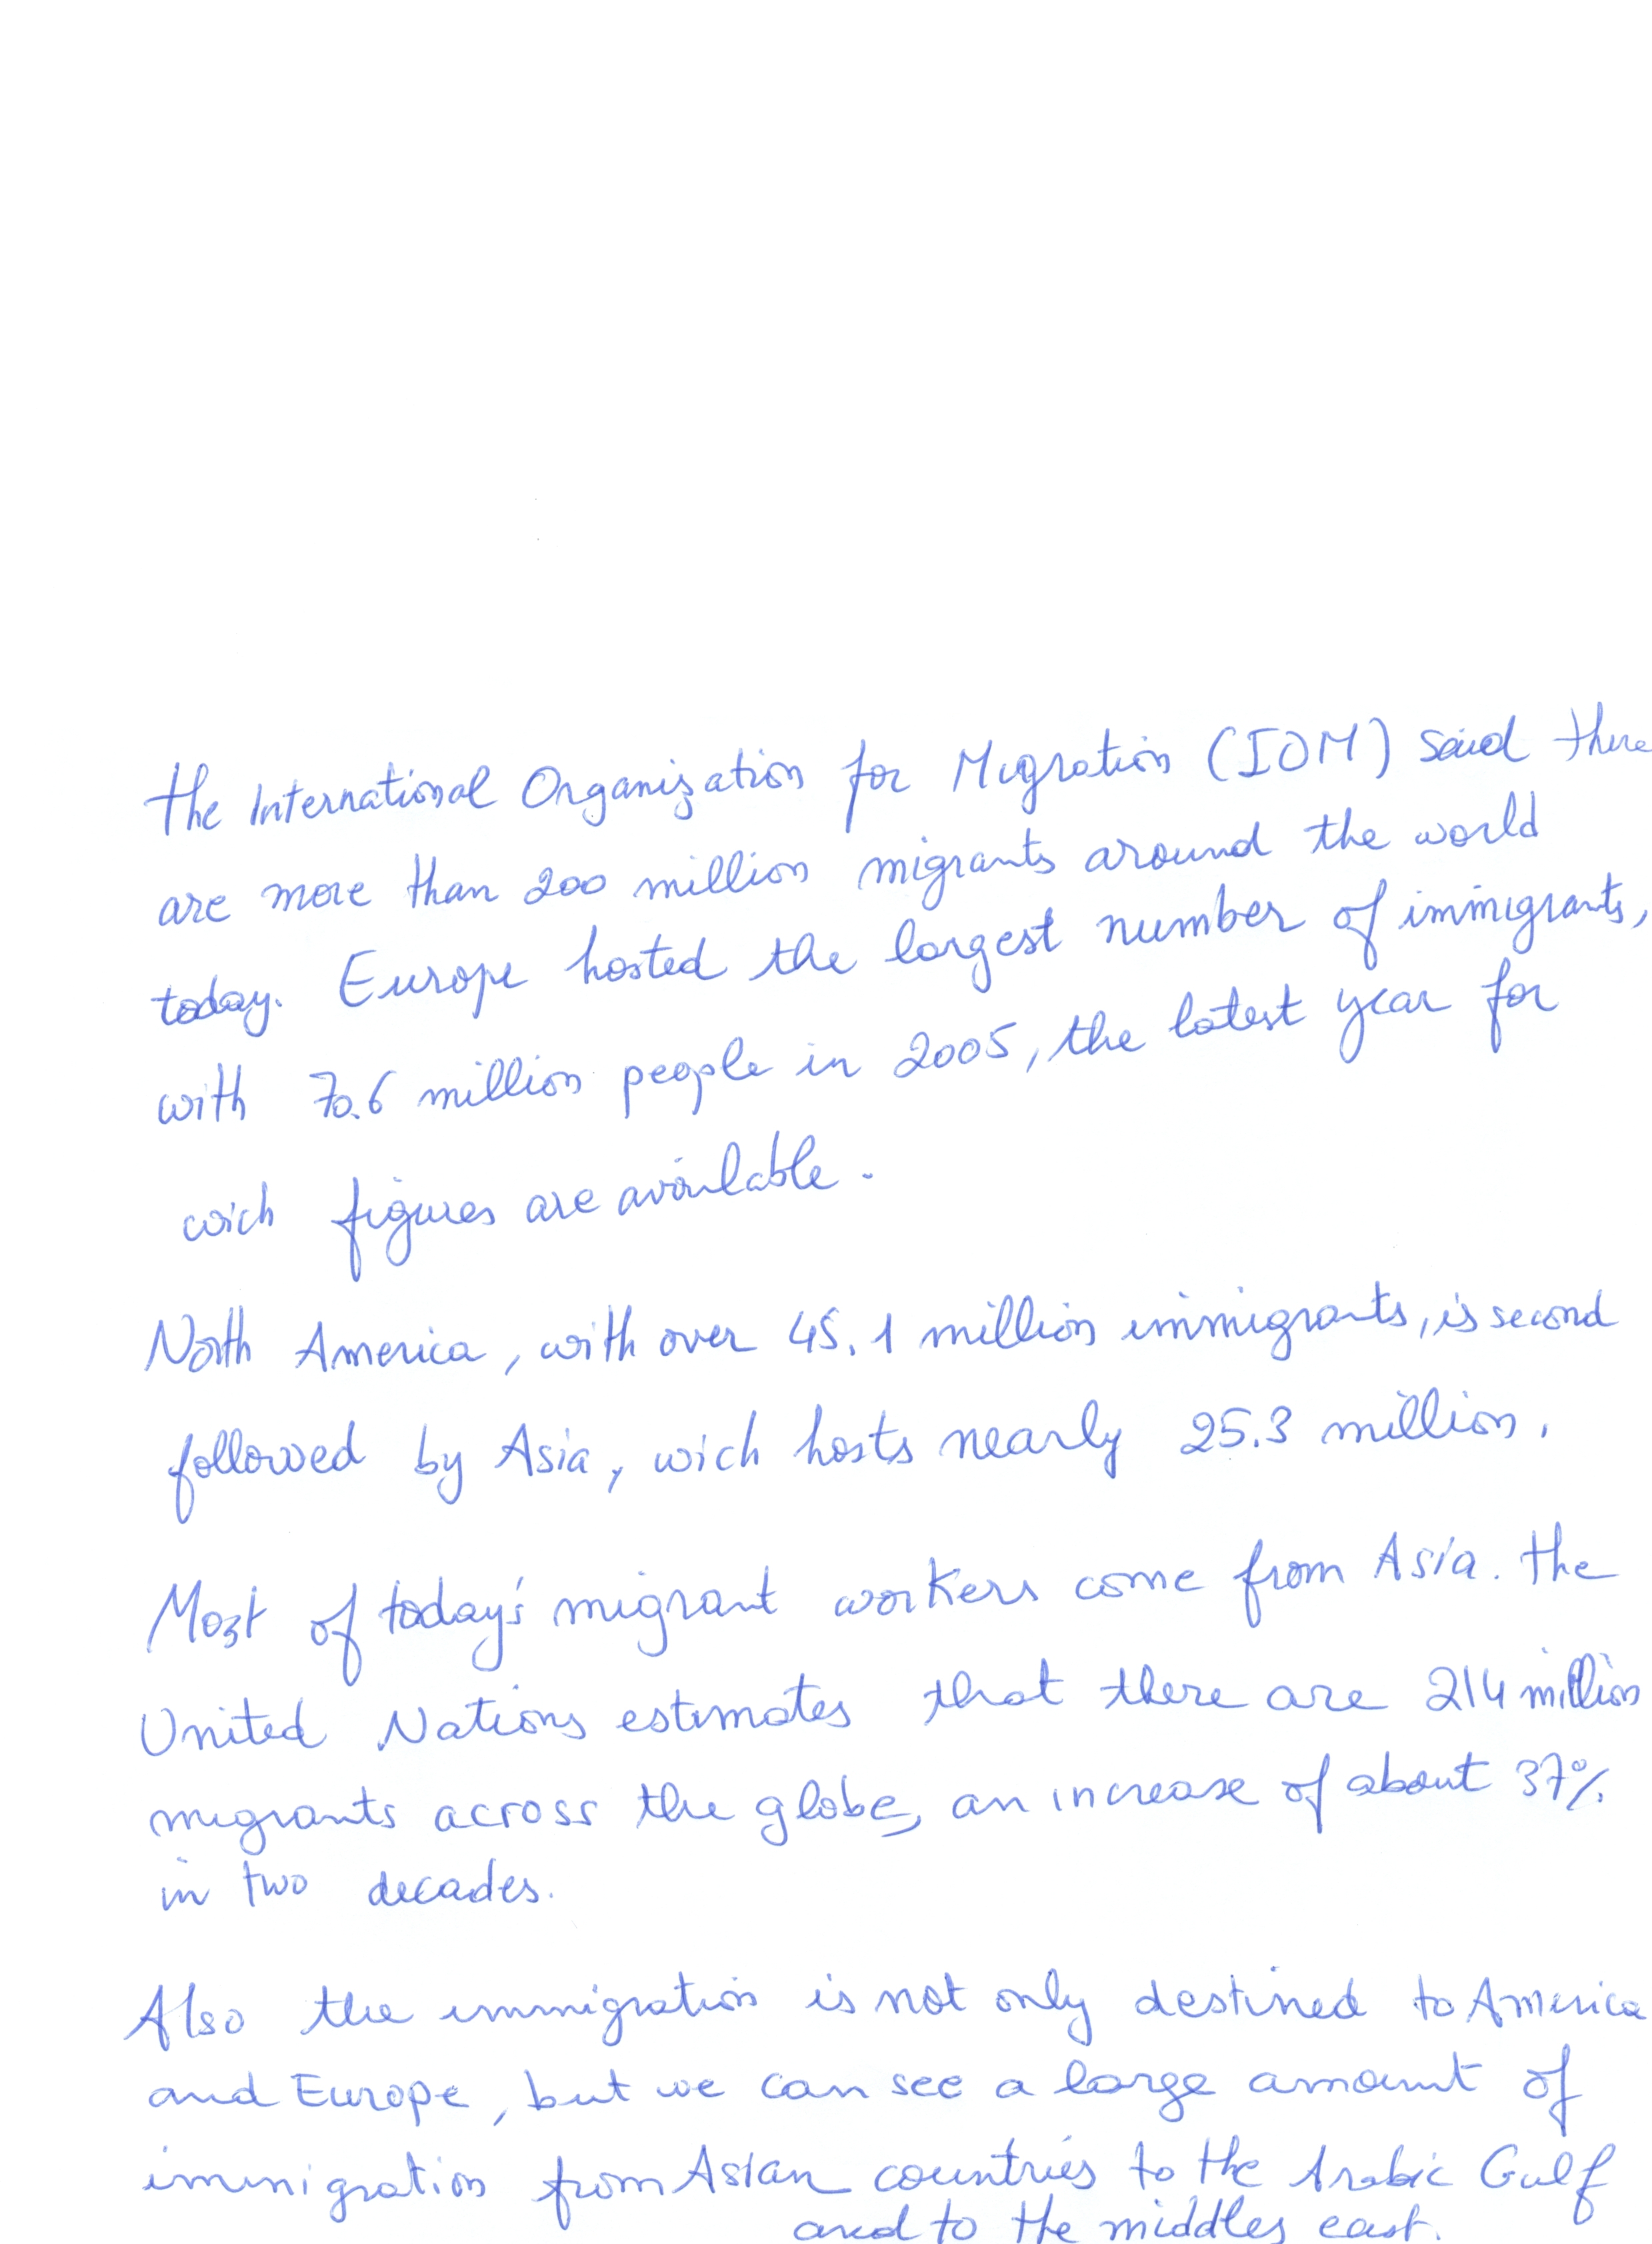 the International Organization for Migration (IOM) said there
are more than 200 million migrants around the world
today. Europe hosted the largest number of immigrants,
with 70.6 million people in 2005, the latest year for
wich figures are available.
North America, with over 45.1 million immigrants, is second
followed by Asia, wich hosts nearly 25.3 million.
Most of today's migrant workers come from Asia. the
United Nations estimates that there are 214 million
migrants across the globe, an increase of about 37%
in two decades.
Also the immigration is not only destined to America
and Europe, but we can see a large amount of
immigration from Asian countries to the Arabic Gulf
and to the middles east.